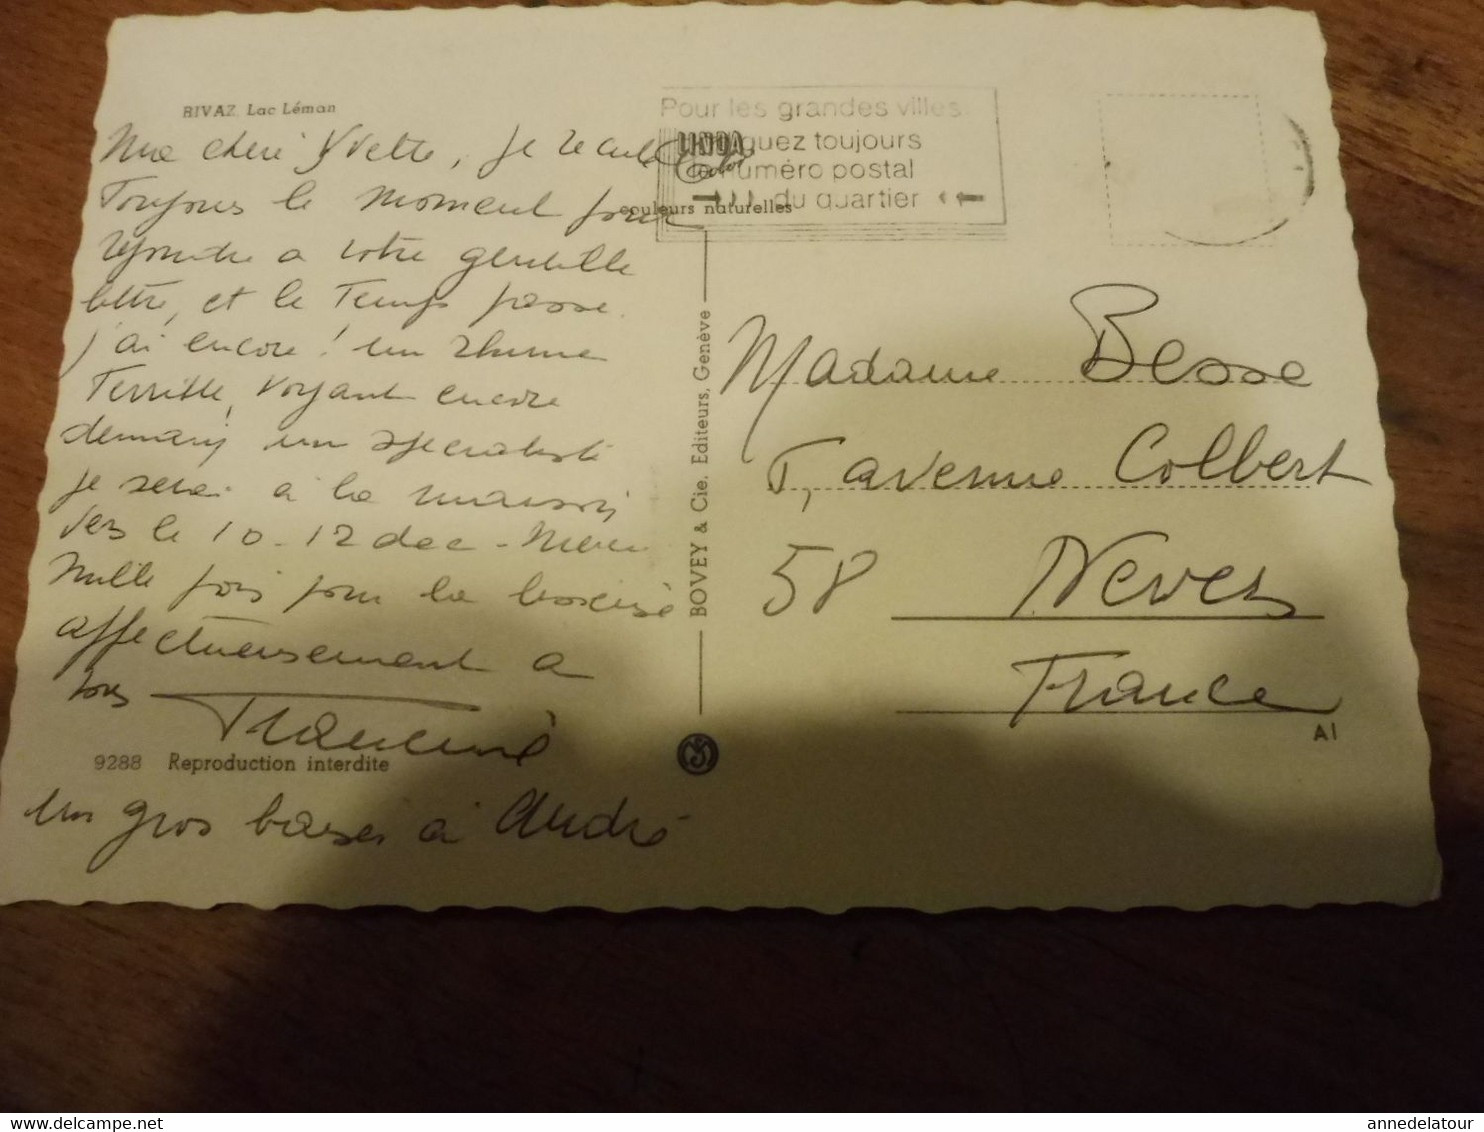 RIVAZ Lac Léman
Ma chère Yvette, je recule
Toujours le moment pour
répondre a votre gentille
lettre, et le Temps passe.
j'ai encore! un rhume
Terrible, Voyant encore
demain un spécialiste
je serai à la maison
vers le 10-12 dec - Merci
Mille fois pour la
affectueusement a
tous
Francine
9288 Reproduction interdite
un gros baiser à André
Pour les grandes villes
quez toujours
numéro postal
du quartier
LINDA
Color
couleurs naturelles
BOVEY & Cie. Editeurs, Genève
Madame Besse
5, avenue Colbert
58 Nevers
France
A1
annedelatour